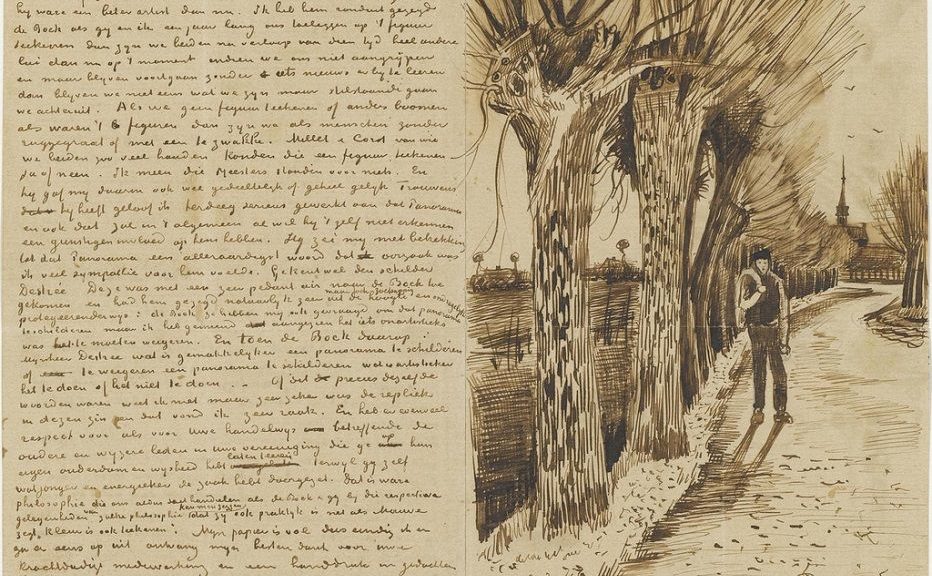 hy ware een beter artist dan nu. Ik heb hem ronduit gezegd
de Bock als gy en ik een jaar lang ons toeleggen op 't figuur
teekenen dan zyn we beiden na verloop van dien tyd heel andere
lui dan nu op 't moment indien we ons niet aangrypen
en maar blyven voortgaan zonder iets nieuws erby te leeren
dan blyven we niet eens wat we zyn maar stilstaande gaan
we achteruit. Als we geen figuur teekenen of anders boomen
als waren 't figuren dan zyn we als menschen zonder
ruggegraat of met een te zwakke. Millet & Corot van wie
we beiden zoo veel houden konden die een figuur teekenen
Ja of neen. Ik meen die Meesters stonden voor niets. En
hy gaf my daarin ook wel gedeeltelyk of geheel gelyk Trouwens
hy heeft geloof ik terdeeg serieus gewerkt aan dat Panorama
en ook dat zal in 't algemeen al wil hy 't zelf niet erkennen
een gunstigen invloed op hem hebben. Hy zei my met betrekking
tot dat Panorama een alleraardigst woord dat oorzaak was
ik veel sympathie voor hem voelde. Ge kent wel den schilder
Destrée. Deze was met een zeer pedant air naar de Bock toe
gekomen en had hem gezegd natuurlyk zeer uit de hoogte en
protegeerenderwys: de Bock ze hebben my ook gevraagd om dat panorama
te schilderen maar ik heb gemeend aangezien het iets onartistieks
was het te moeten weigeren. En toen de Bock daarop:
Mynheer Destrée wat is gemakkelyker een panorama te schilderen
of te weigeren een panorama te schilderen wat is artistieker
het te doen of het niet te doen... Of dit precies dezelfde
woorden waren weet ik niet maar zeer zeker was de repliek
in dezen zin en dat vond ik zeer raak. En heb er evenveel
respect voor als voor Uwe handelwys betreffende de
oudere en wyzere leden in uwe vereeniging die ge op hun
eigen ouderdom en wysheid hebt laten teeren Terwyl gy zelf
wat jonger en energieker de zaak hebt doorgezet. Dat is ware
philosophie die ons doen handelen als de Bock & gy by die respectieve
gelegenheden van zulke philosophie kan men zeggen dat zy ook praktyk is net als Mauve
zegt. kleur is ook teekenen. Myn papier is vol dus eindig ik en
ga er eens op uit ontvang myn besten dank voor uwe
krachtdadige medewerking en een handdruk in gedachten